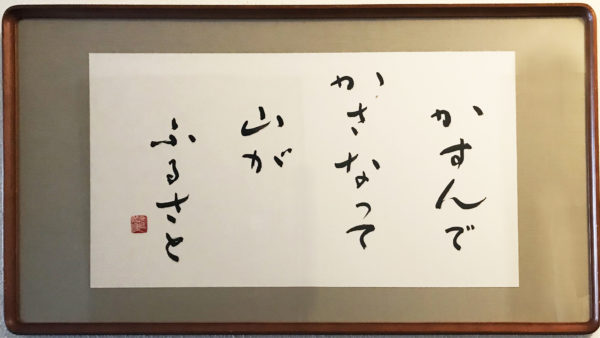 かすんで
かさなって
山が
ふるさと